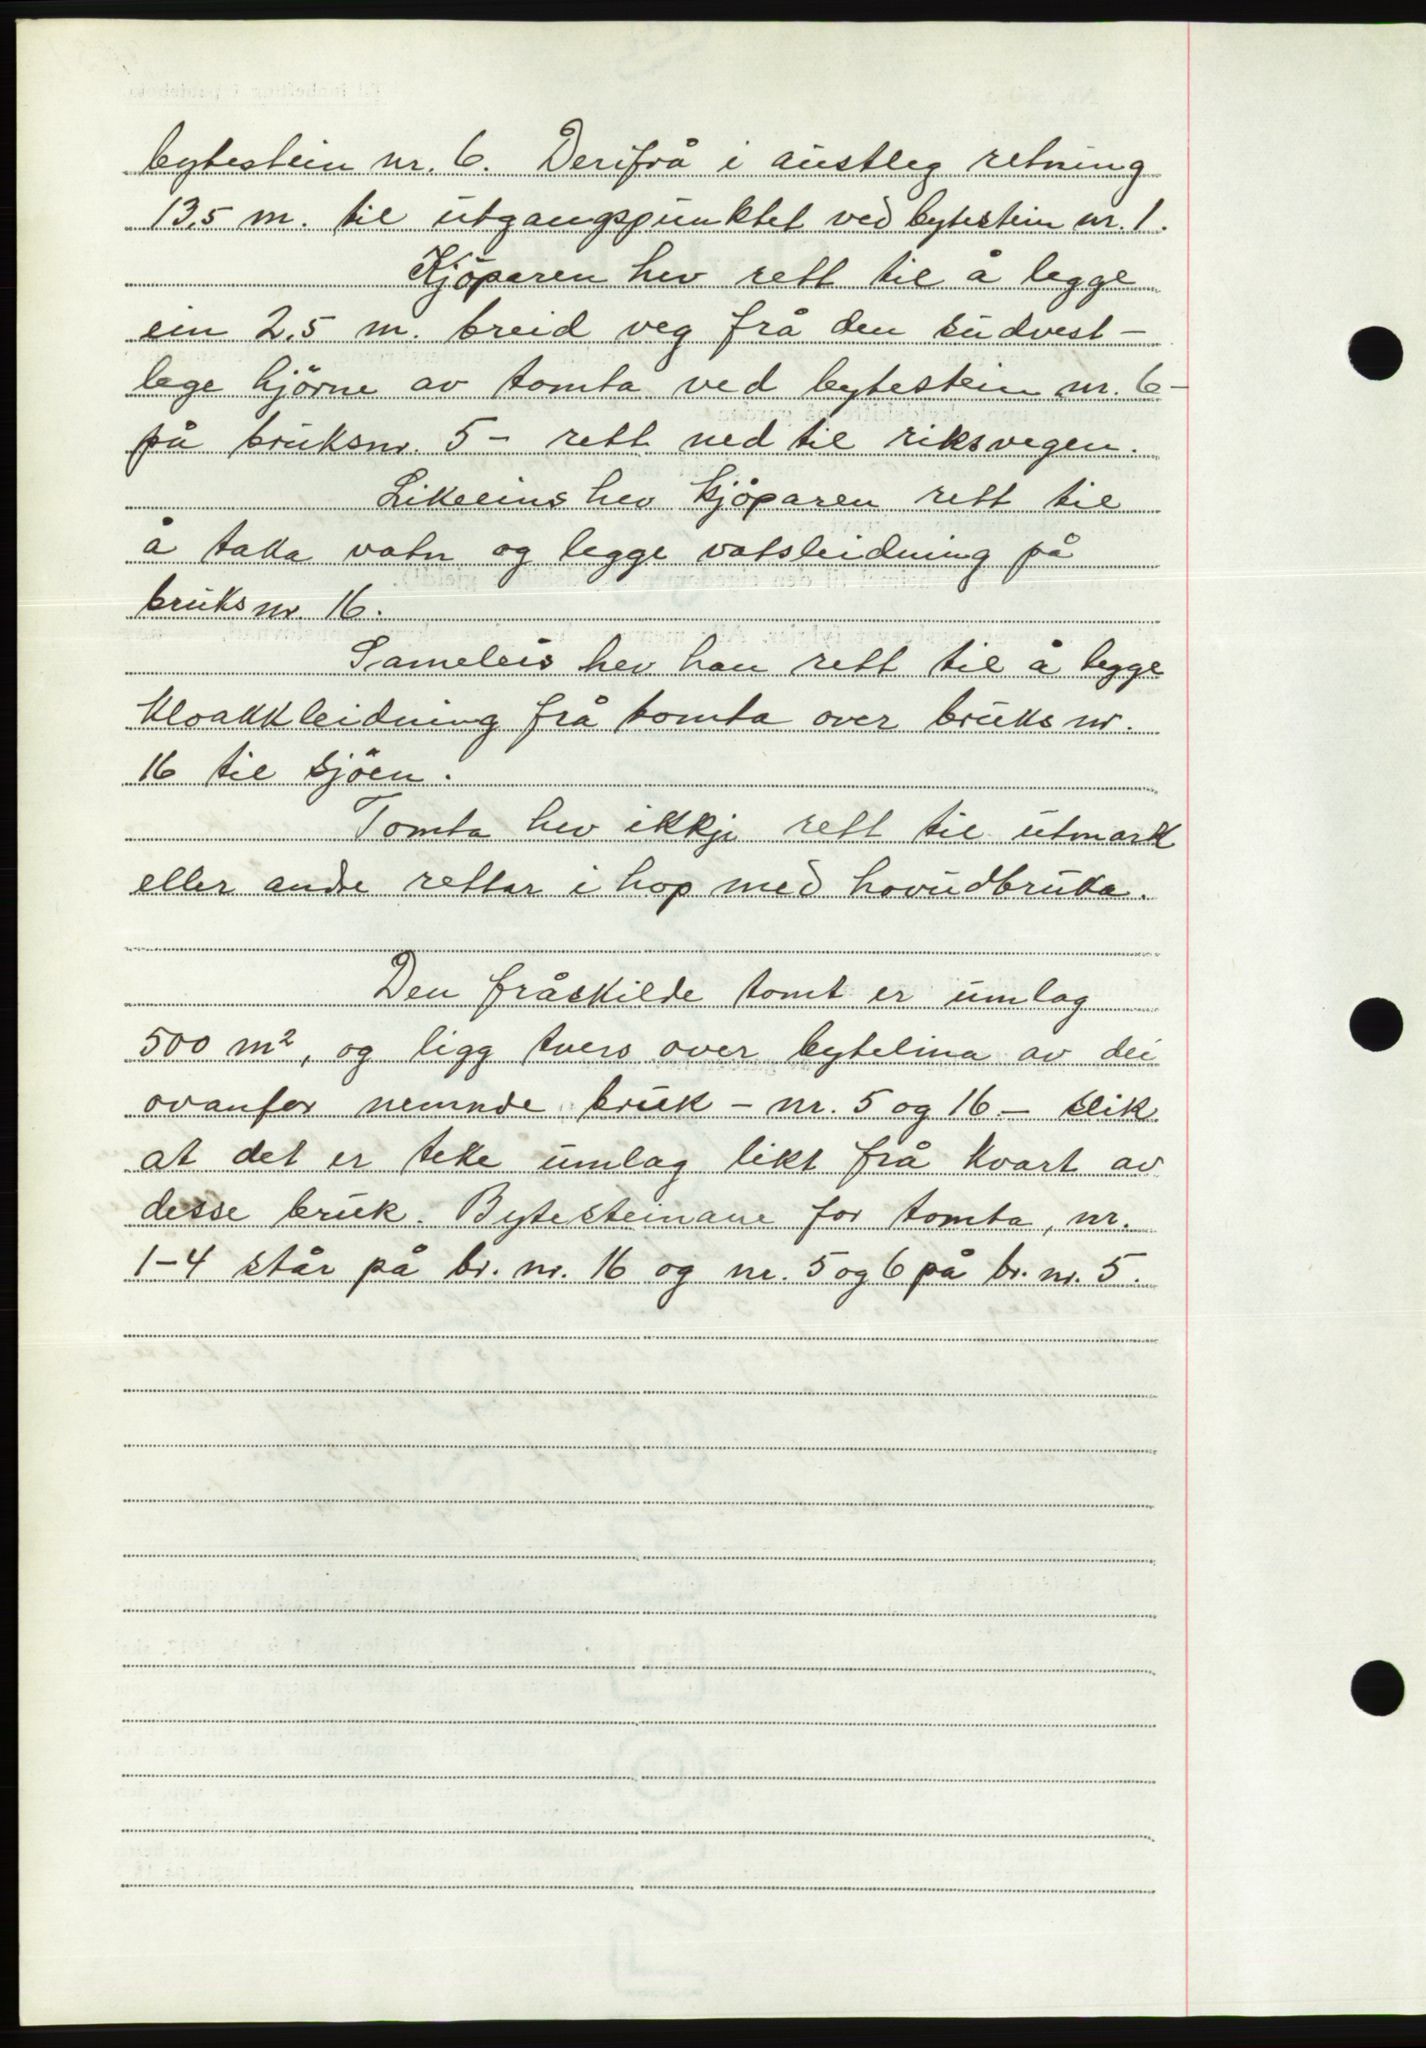 bytestein nr. 6. Derifrå i austleg retning
13,5 m. til utgangspunktet ved bytestein nr. 1.
Kjöparen hev rett til å legge
ein 2,5 m. breid veg frå den sudvest-
lege hjörne av tomta ved bytestein nr. 6 -
på bruksnr. 5 - rett ned til riksvegen.
Likeeins hev kjöparen rett til
å taka vatn og legge vatsleidning på
bruksnr. 16.
Sameleis hev han rett til å legge
kloakkleidning frå tomta over bruksnr.
16 til sjöen.
Tomta hev ikkje rett til utmark
eller andre rettar i hop med hovudbruka.
Den fråskilde tomt er umlag
500 m², og ligg tvers over bytelina av dei
ovanfor nemnde bruk - nr. 5 og 16 - slik
at det er teke umlag likt frå kvart av
desse bruk. Bytesteinane for tomta, nr.
1-4 står på br. nr. 16 og nr. 5 og 6 på br. nr. 5.